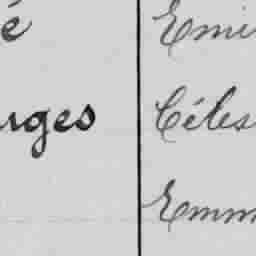 é Emi
rges Céles
Emm